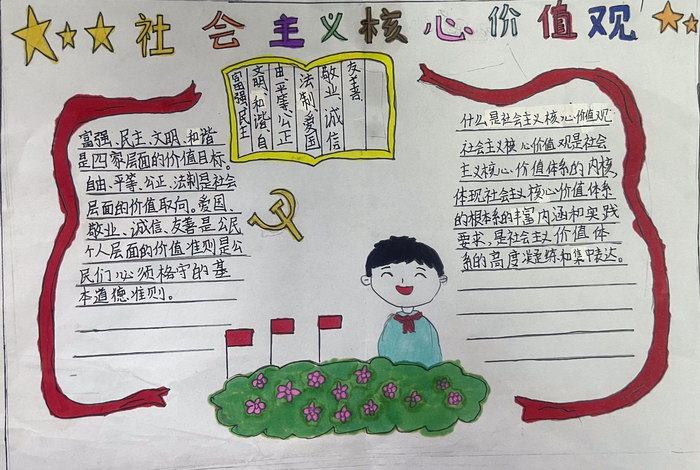 社会主义核心价值观
富强、民主
文明、和谐、自
由、平等、公正
法制、爱国
敬业、诚信
友善
富强、民主、文明、和谐
是四家层面的价值目标。
自由、平等、公正、法制是社会
层面的价值取向。爱国、
敬业、诚信、友善是公民
个人层面的价值准则是公
民们心须格守的基
本道德准则。
什么是社会主义核心价值观:
社会主义核心价值观是社会
主义核心价值体系的内核,
体现社会主义核心价值体系
的根本系的丰富内涵和实践
要求,是社会主义价值体
系的高度凝练和集中表达。